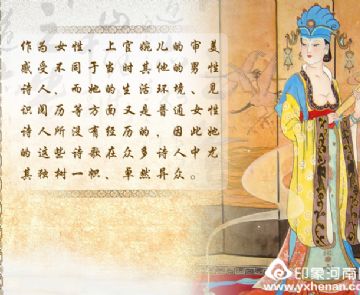 作为女性，上官婉儿的审美
感受不同于当时其他的男性
诗人，而她的生活环境、见
识阅历等方面又是普通女性
诗人所没有经历的，因此她
的这些诗歌在众多诗人中尤
其独树一帜、卓然异众。
印象河南网
www.yxhenan.com